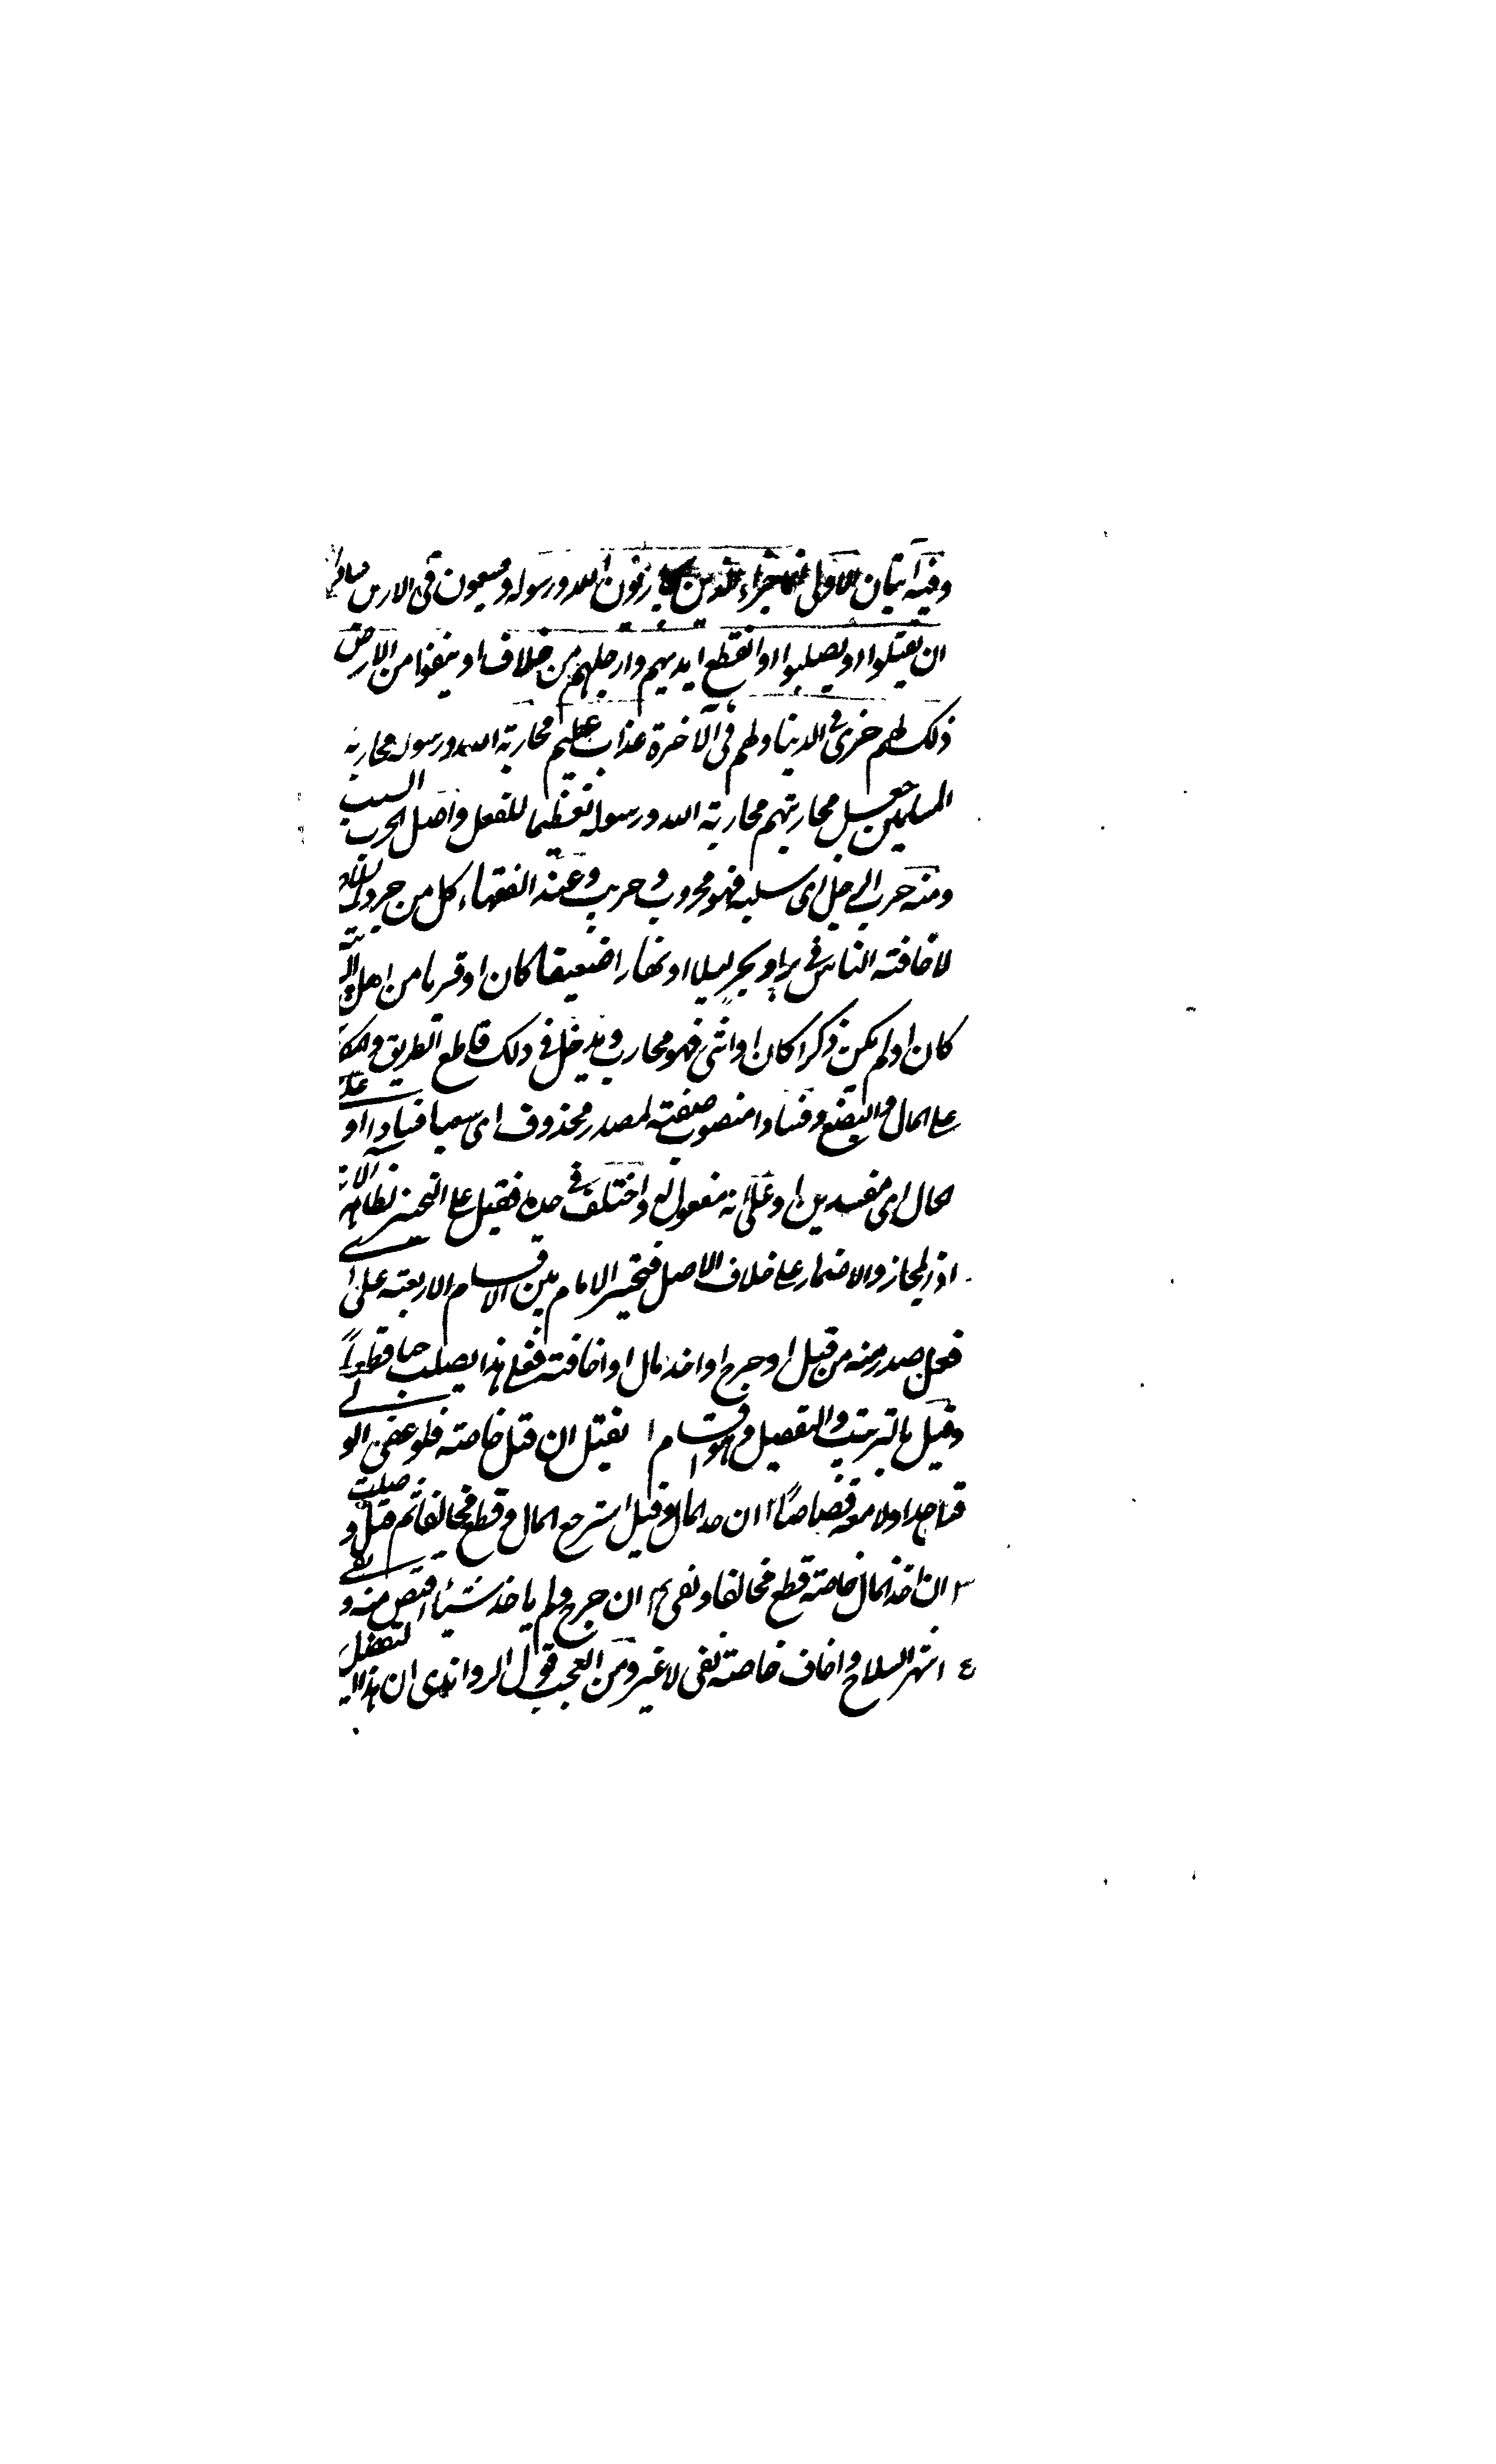 وفيه آيتان الاولى انما جزاء الذين يحاربون الله ورسوله ويسعون فى الارض فسادا
ان يقتلوا او يصلبوا او تقطع ايديهم وارجلهم من خلاف او ينفوا من الارض
ذلك لهم خزى فى الدنيا ولهم فى الآخرة عذاب عظيم محاربة الله ورسوله محاربة
المسلمين جعل محاربتهم محاربة الله ورسوله تعظيما للفعل واصل الحرب السلب
ومنه حرب الرجل اى سلبه فهو محروب وحريب وعند الفقهاء كل من جرد السلاح
لاخافة الناس فى بر او بحر ليلا او نهارا ضعيفا كان او قويا من اهل الريبة
كان او لم يكن ذكرا كان او انثى فهو محارب ويدخل فى ذلك قاطع الطريق والمكابر
على المال والبضع وفسادا منصوب صفة لمصدر محذوف اى سعيا فسادا او على
الحال اى مفسدين او على انه مفعول له واختلف فى حده فقيل على التخيير لظاهر الآية
اذ المجاز والاضمار على خلاف الاصل فتخير الامام بين الاقسام الاربعة على اى
فعل صدر منه من قتل او جرح او اخذ مال او اخافة فعلى هذا يصلب حيا قطعا
وقيل بالترتيب والتفصيل وهو اقسام ١ يقتل ان قتل خاصة فلو عفى الولى
قتل حدا ولا معه قصاصا ٢ ان اخذ المال وقتل استرجع المال وقطع مخالفا ثم قتل وصلب
٣ ان اخذ المال خاصة قطع مخالفا ونفى ٤ ان جرح ولم ياخذ شيئا اقتص منه ونفى
٤ اشهر السلاح واخاف خاصة نفى لا غير ومن العجب قول الراوندى ان هذا التفصيل